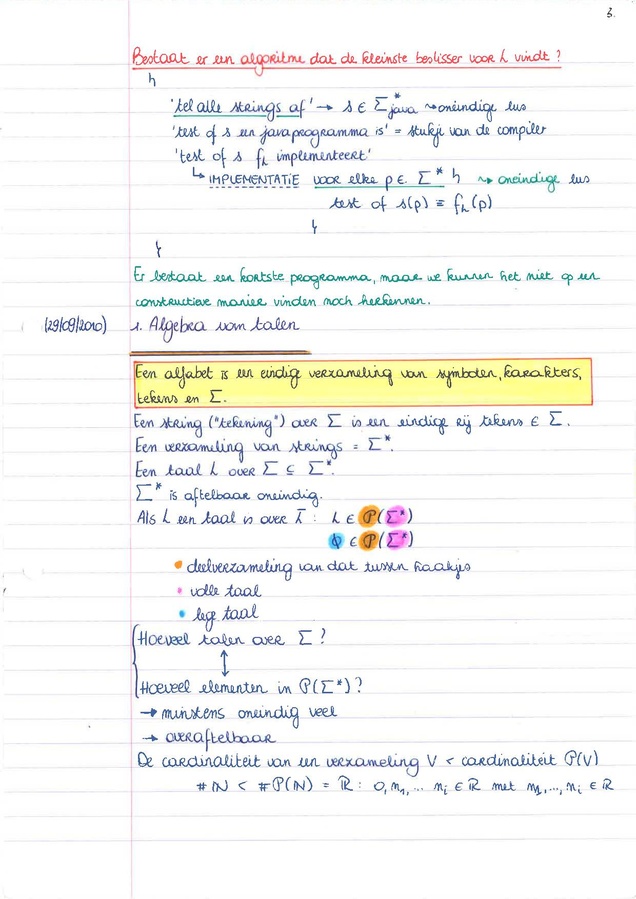 3.
Bestaat er een algoritme dat de kleinste beslisser voor L vindt?
{
'tel alle strings af' → s ∈ Σ*java ⤳ oneindige lus
'test of s een javaprogramma is' = stukje van de compiler
'test of s fL implementeert'
↳ IMPLEMENTATIE voor elke p ∈ Σ* { ⤳ oneindige lus
test of s(p) ≡ fL(p)
}
}
Er bestaat een kortste programma, maar we kunnen het niet op een
constructieve manier vinden noch herkennen.
(29/09/2010) 1. Algebra van talen
Een alfabet is een eindig verzameling van symbolen, karakters,
tekens en Σ.
Een string ("tekening") over Σ is een eindige rij tekens ∈ Σ.
Een verzameling van strings = Σ*.
Een taal L over Σ ⊆ Σ*.
Σ* is aftelbaar oneindig.
Als L een taal is over Σ : L ∈ P(Σ*)
ϕ ∈ P(Σ*)
• deelverzameling van dat tussen haakjes
• volle taal
• lege taal
Hoeveel talen over Σ?
↕
Hoeveel elementen in P(Σ*)?
→ minstens oneindig veel
→ overaftelbaar
De cardinaliteit van een verzameling V < cardinaliteit P(V)
#ℕ < #P(ℕ) = ℝ : 0, n1, ... ni ∈ ℝ met n1, ..., ni ∈ ℝ